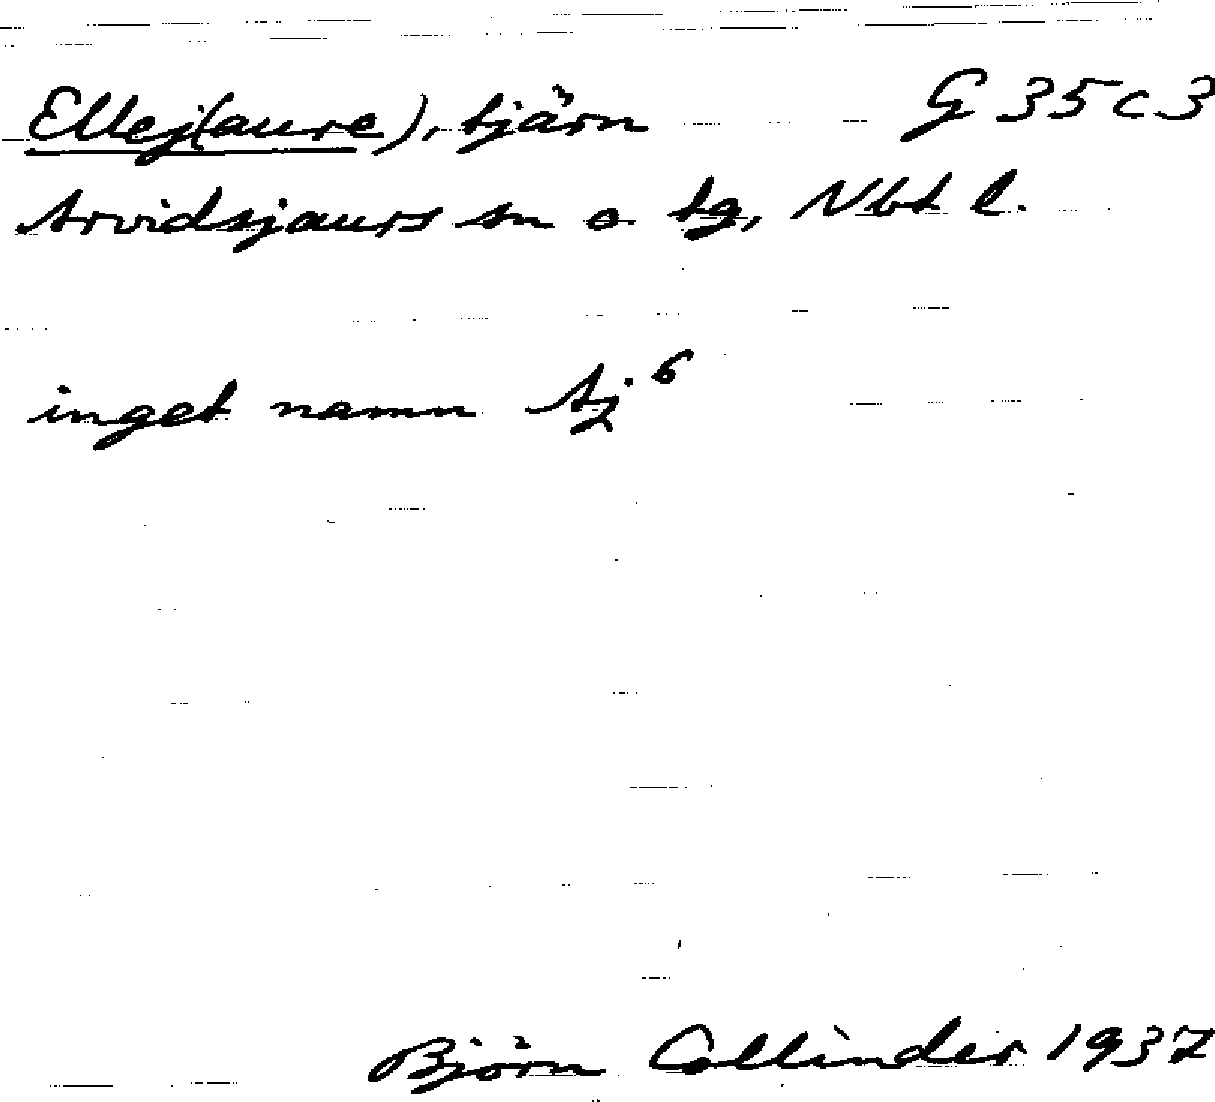 Ellej(aure), tjärn G 35 c 3
Arvidsjaurs sn o tg, Nbt l.
inget namn Aj⁶
Björn Collinder 1937